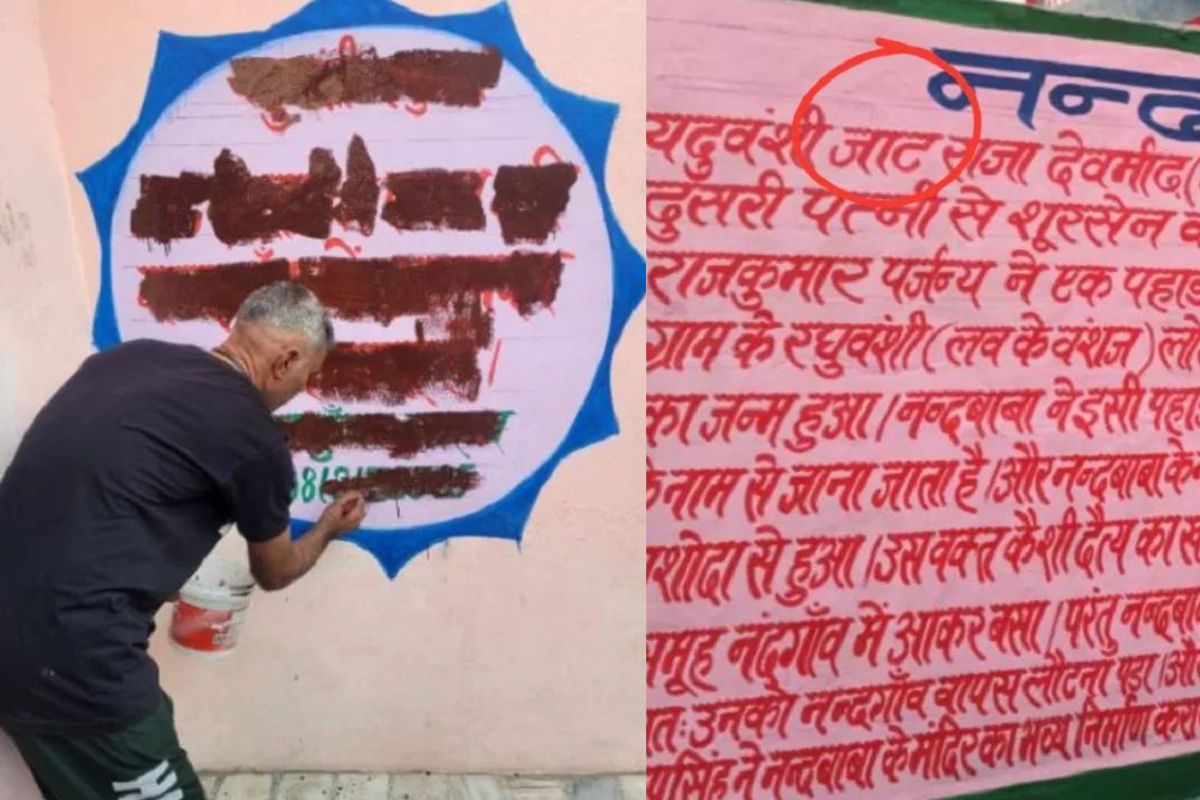 981
नन्द
यदुवंशी जाट राजा देवमीढ (
दुसरी पत्नी से शूरसेन व
राजकुमार पर्जन्य ने एक पहाड़
ग्राम के रघुवंशी (लव के वंशज) लो
का जन्म हुआ। नन्दबाबा ने इसी पहा
के नाम से जाना जाता है। और नन्दबाबा के
शोदा से हुआ। उस वक्त कैशी दैत्य का
समूह नंदगाँव में आकर बसा। परंतु नन्दबा
तः उनको नन्दगाँव वापस लौटना पड़ा। औ
पसिंह ने नन्दबाबा के मंदिर का भव्य निर्माण करा